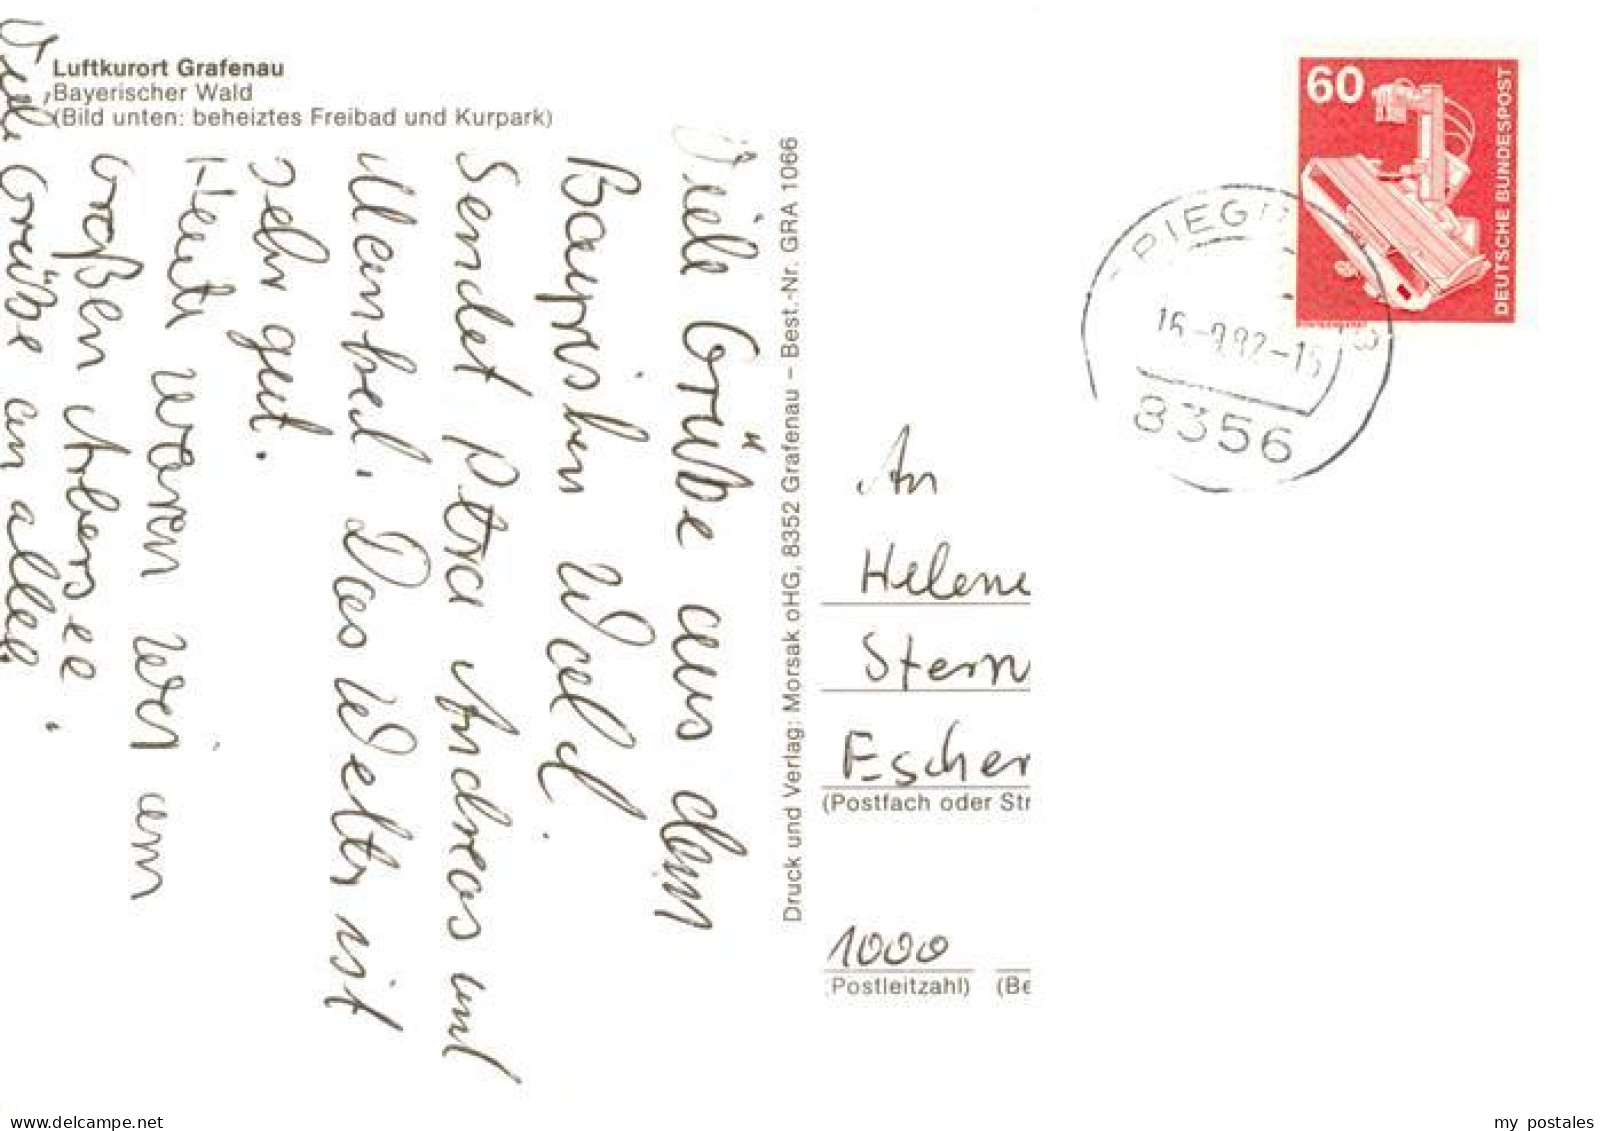 Luftkurort Grafenau
Bayerischer Wald
(Bild unten: beheiztes Freibad und Kurpark)
Viele Grüße aus dem
Bayrishen Wald.
Sendet Petra Andreas und
Das Wetter ist
sehr gut.
Heute waren wir am
Großen Arbersee.
Viele Grüße an alle.
Druck und Verlag: Morsak oHG, 8352 Grafenau – Best.-Nr. GRA 1066
60
DEUTSCHE BUNDESPOST
8356
An
Helene
Stern
Escher
(Postfach oder Str
1000
(Postleitzahl) (Be
delcampe.net
my_postales